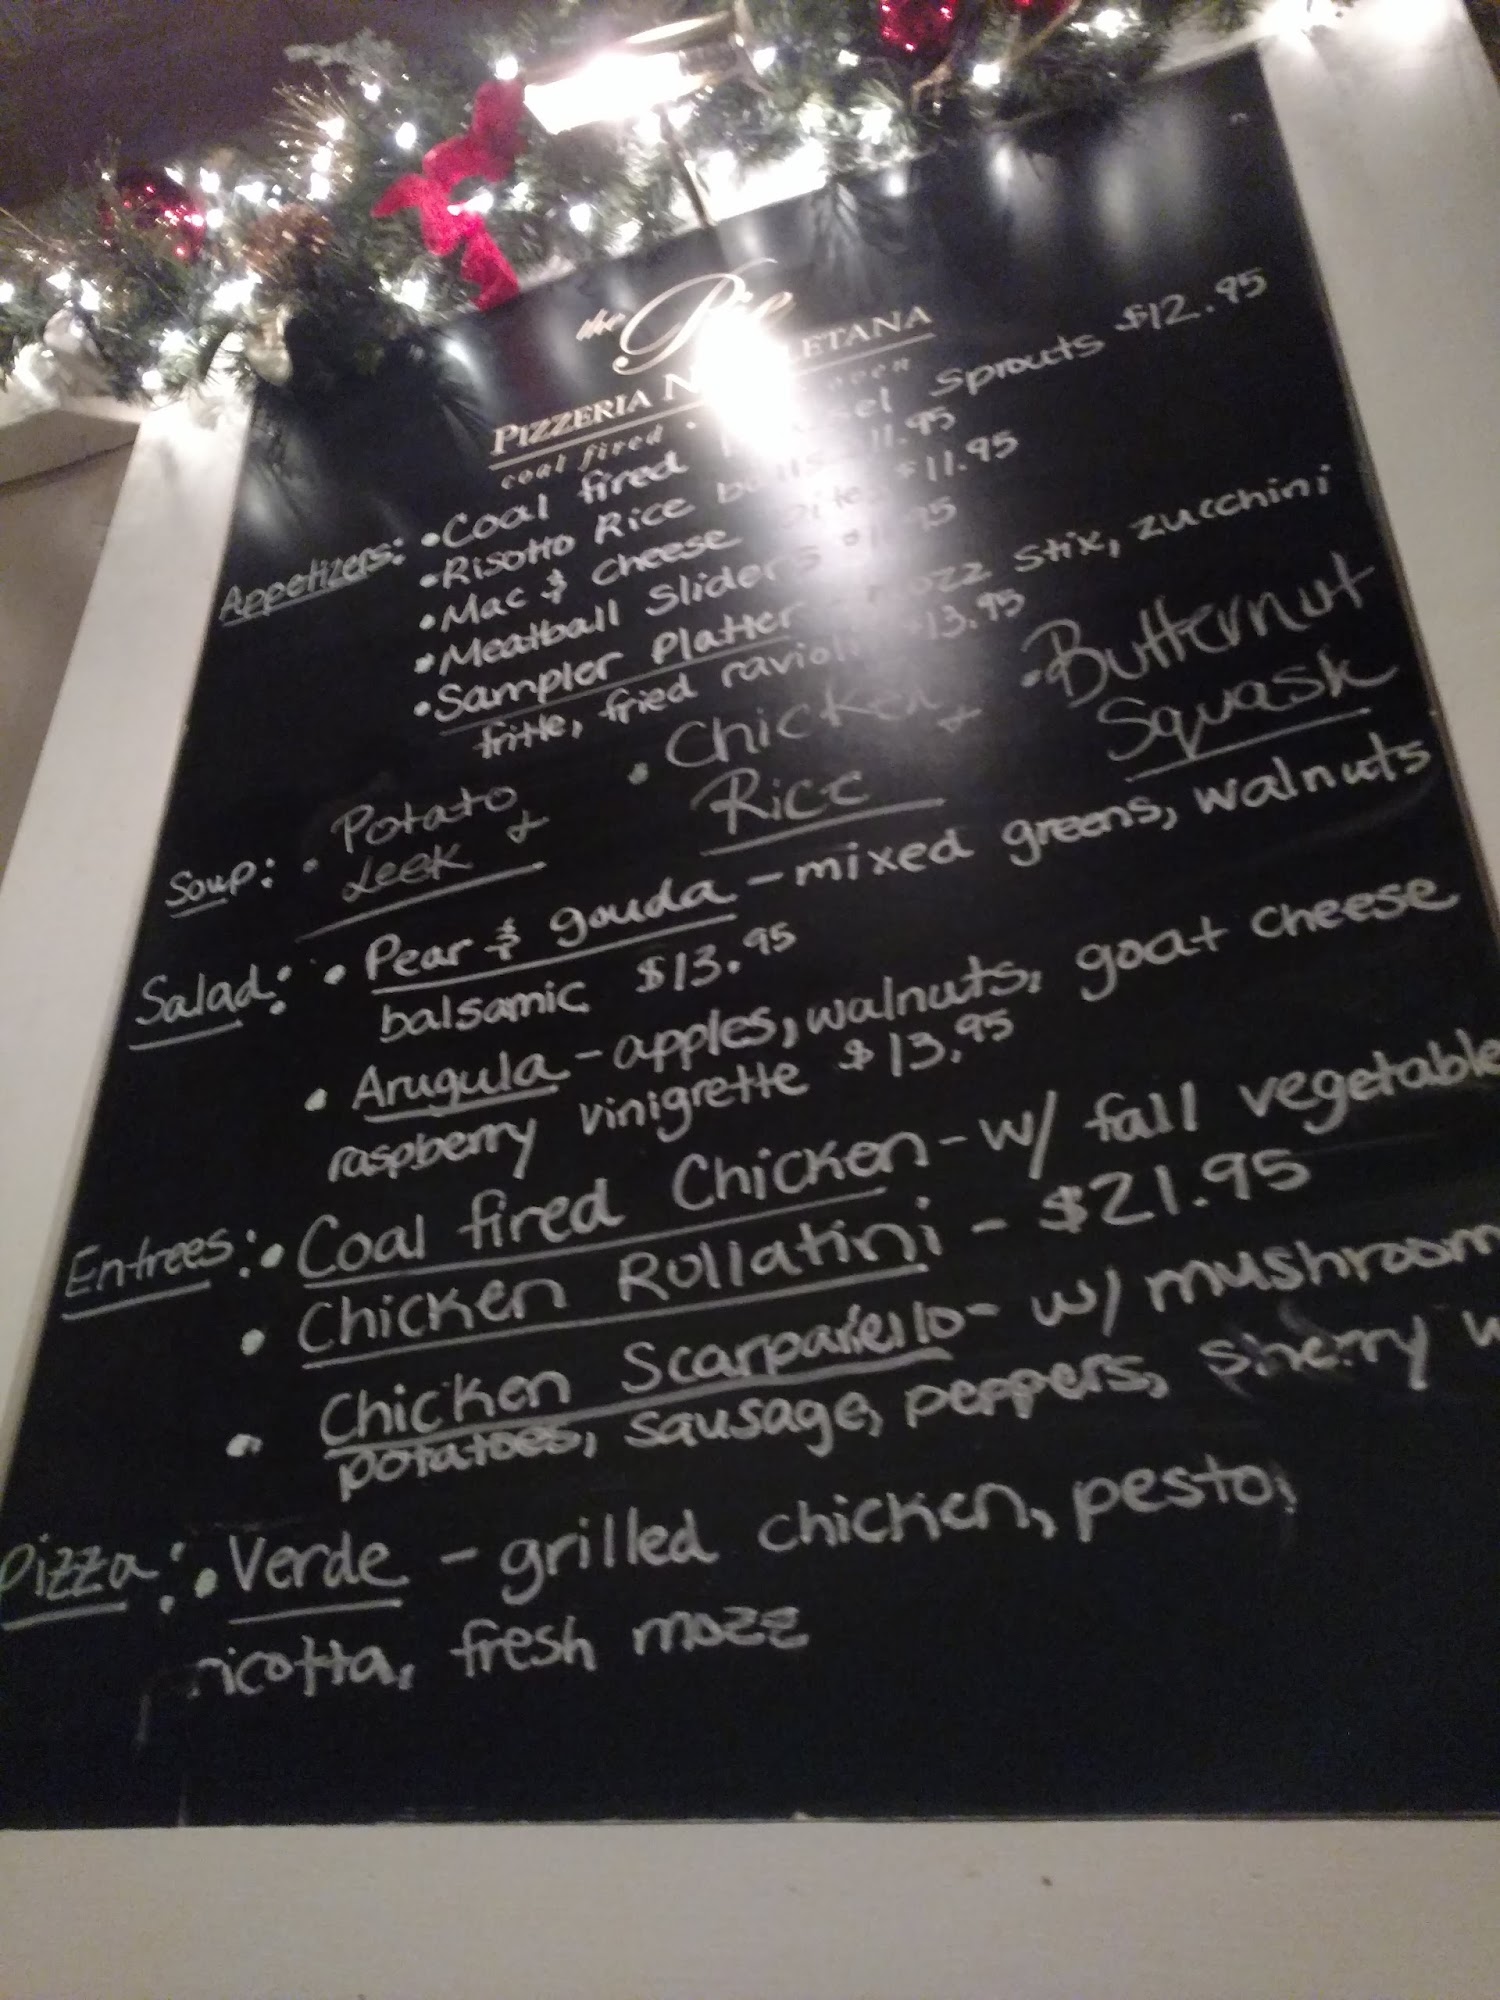 the Pie
PIZZERIA
coal fired
Appetizers: • Coal fired sprouts $12.95
• Risotto Rice 11.95
• Mac & cheese $11.95
• Meatball Sliders
• Sampler Platter - mozz stix, zucchini
fritte, fried ravioli 13.95
Soup: • Potato & Leek • Chicken & Rice • Butternut Squash
Salad: • Pear & gouda - mixed greens, walnuts
balsamic $13.95
• Arugula - apples, walnuts, goat cheese
raspberry vinigrette $13.95
Entrees: • Coal fired Chicken - w/ fall vegetable
• Chicken Rollatini - $21.95
• Chicken Scarpariello - w/ mushroom
potatoes, sausage, peppers, sherry w
Pizza: • Verde - grilled chicken, pesto,
ricotta, fresh mozz